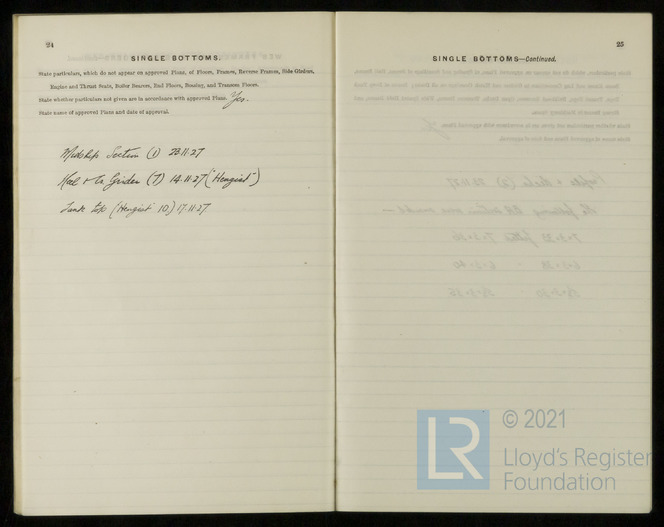 24
SINGLE BOTTOMS.
State particulars, which do not appear on approved Plans, of Floors, Frames, Reverse Frames, Side Girders,
Engine and Thrust Seats, Boiler Bearers, End Floors, Breasting, and Transom Floors.
State whether particulars not given are in accordance with approved Plans. Yes.
State name of approved Plans and date of approval.
Midship Section (1) 23.11.27
Keel & Ctr Girder (7) 14.11.27 ("Hengist")
Tank top (Hengist 10) 17.11.27
25
SINGLE BOTTOMS—Continued.
LR
© 2021
Lloyd's Register
Foundation